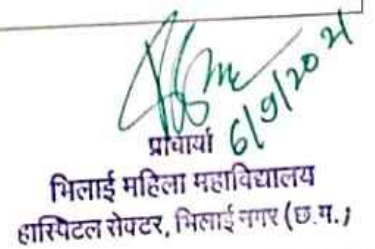 6/9/2021
प्राचार्या
भिलाई महिला महाविद्यालय
हास्पिटल सेक्टर, भिलाई नगर (छ.ग.)